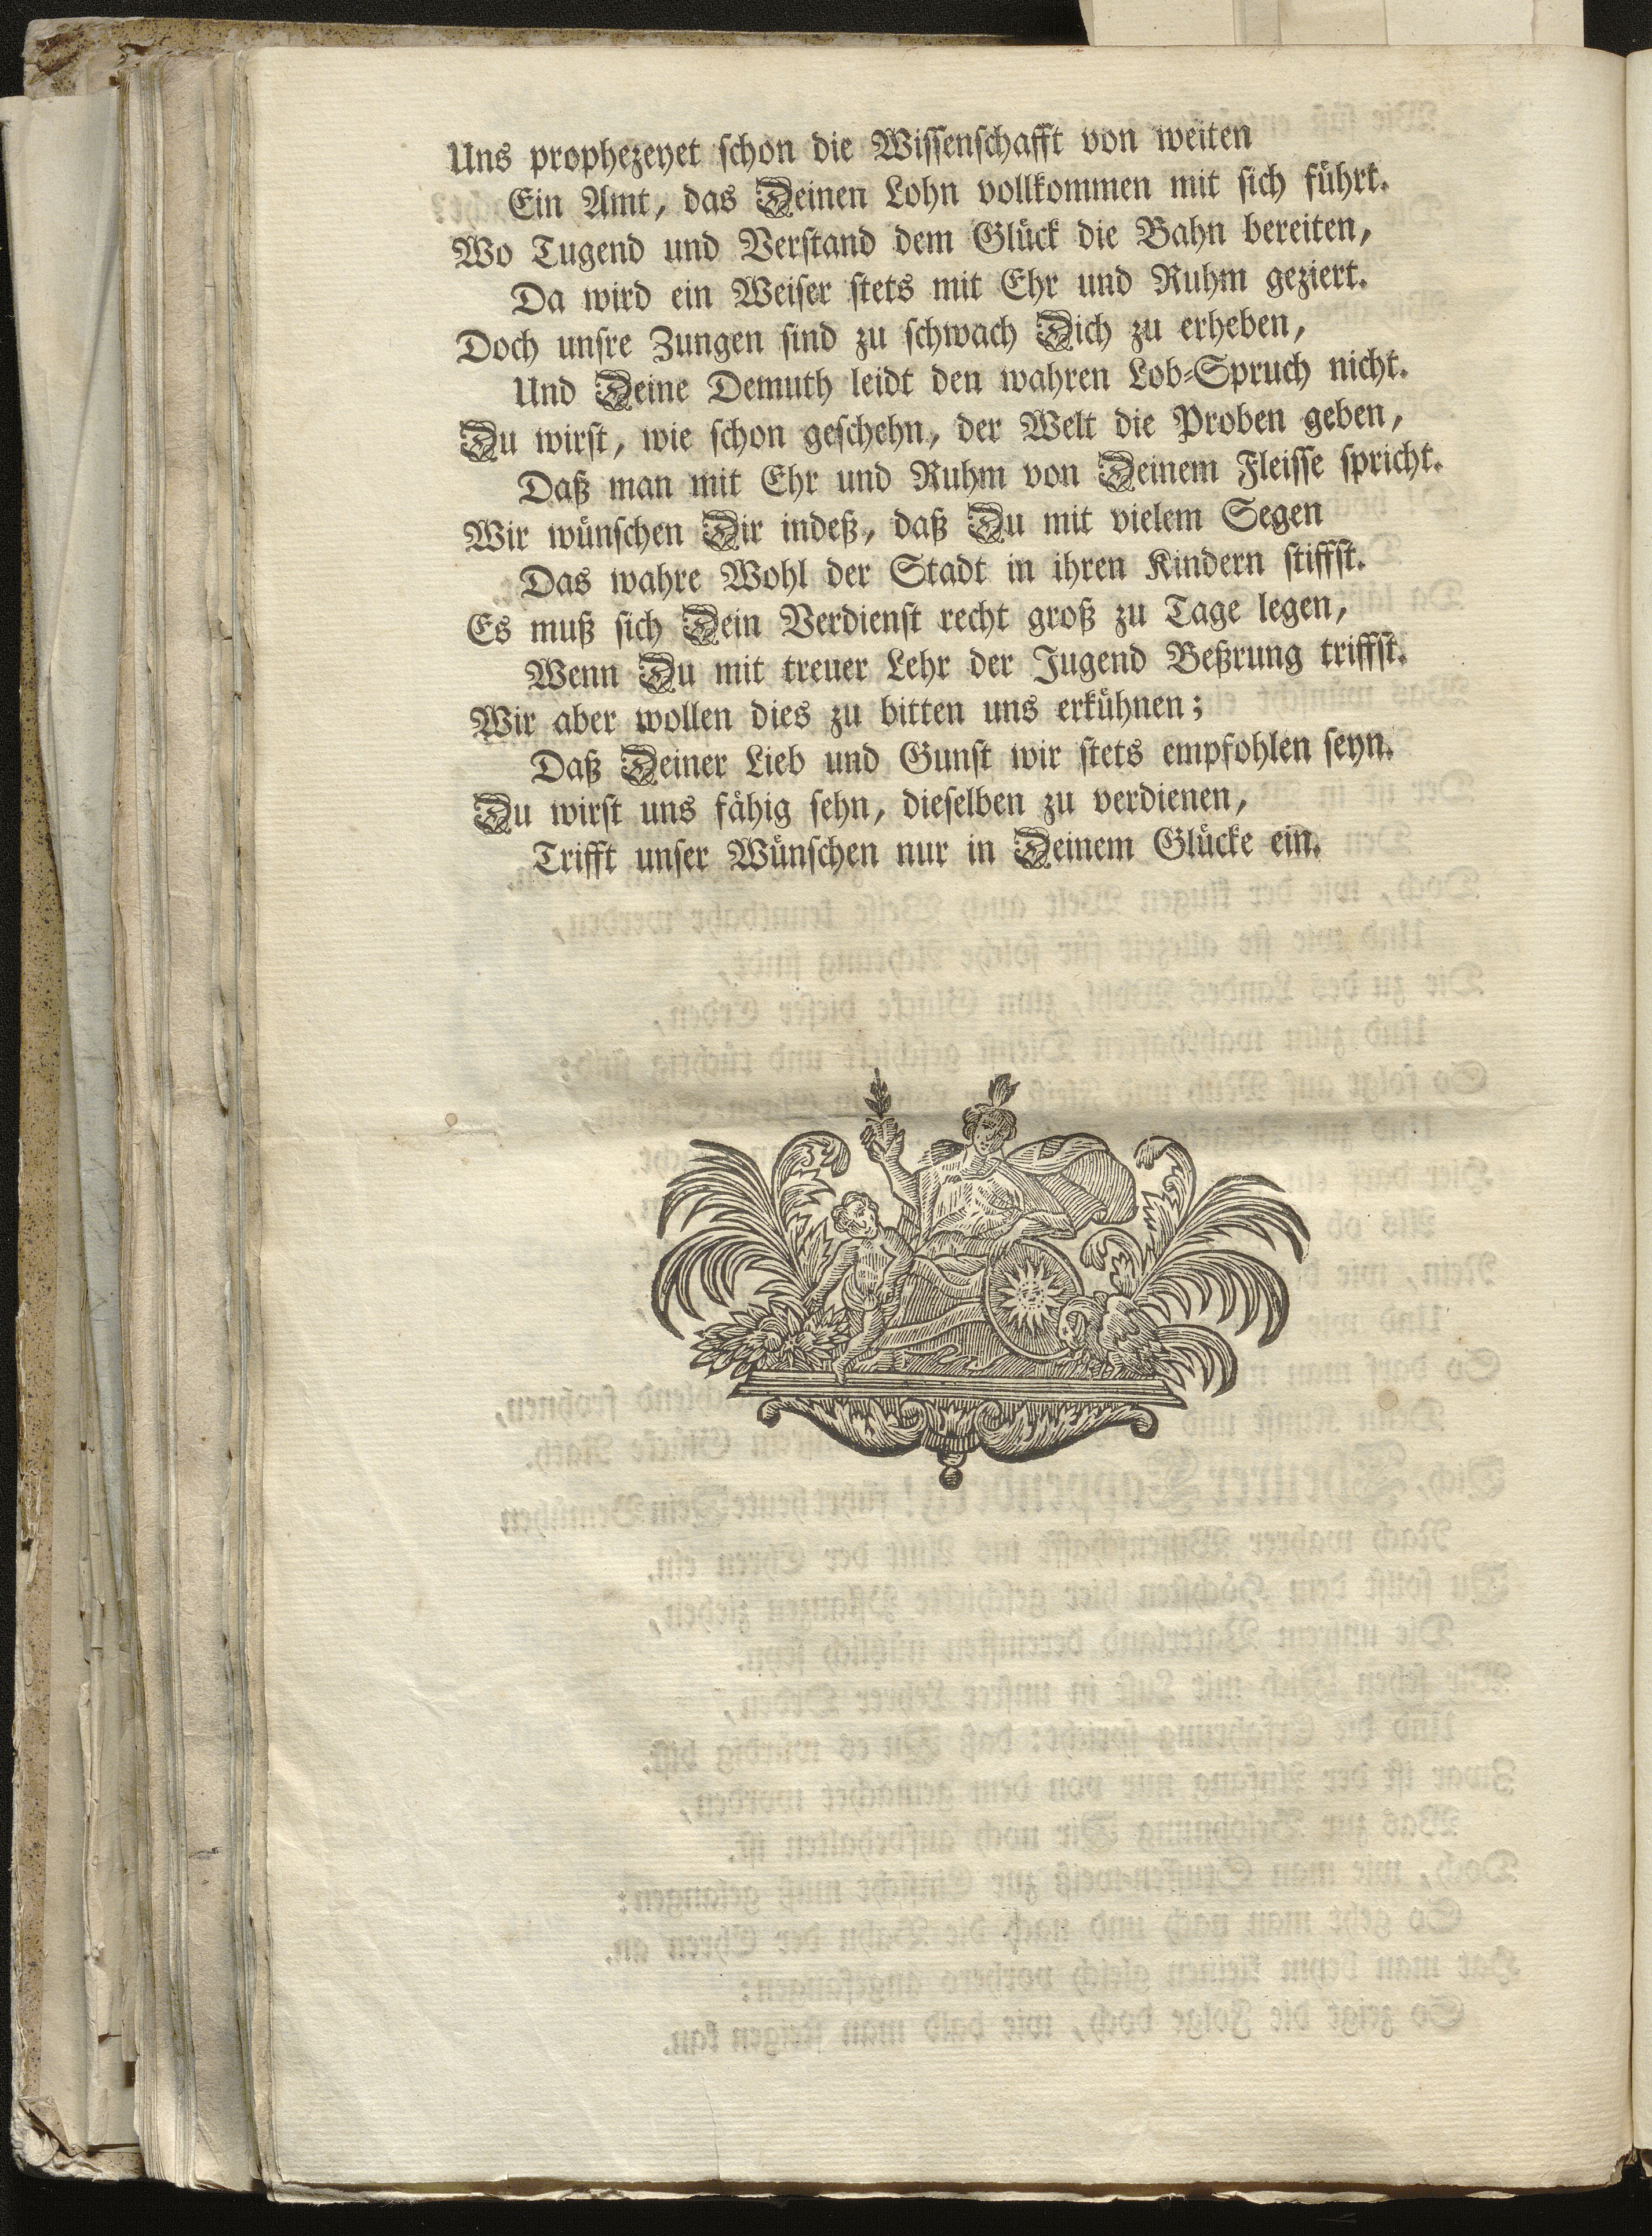 Uns prophezeyet schon die Wissenschafft von weiten
Ein Amt, das Deinen Lohn vollkommen mit sich führt.
Wo Tugend und Verstand dem Glück die Bahn bereiten,
Da wird ein Weiser stets mit Ehr und Ruhm geziert.
Doch unsre Zungen sind zu schwach Dich zu erheben,
Und Deine Demuth leidt den wahren Lob-Spruch nicht.
Du wirst, wie schon geschehn, der Welt die Proben geben,
Daß man mit Ehr und Ruhm von Deinem Fleisse spricht.
Wir wünschen Dir indeß, daß Du mit vielem Segen
Das wahre Wohl der Stadt in ihren Kindern stiffst.
Es muß sich Dein Verdienst recht groß zu Tage legen,
Wenn Du mit treuer Lehr der Jugend Beßrung triffst.
Wir aber wollen dies zu bitten uns erkühnen;
Daß Deiner Lieb und Gunst wir stets empfohlen seyn.
Du wirst uns fähig sehn, dieselben zu verdienen,
Trifft unser Wünschen nur in Deinem Glücke ein.